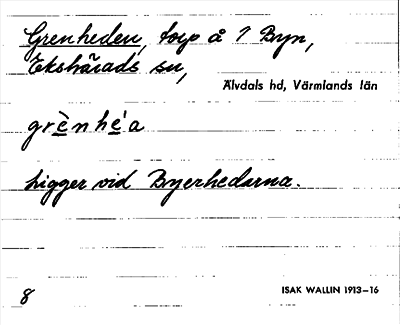 Grenheden, torp å ? Byn,
Ekshärads sn,
Älvdals hd, Värmlands län
grènhéa
Ligger vid Byerhedarna.
8
ISAK WALLIN 1913–16